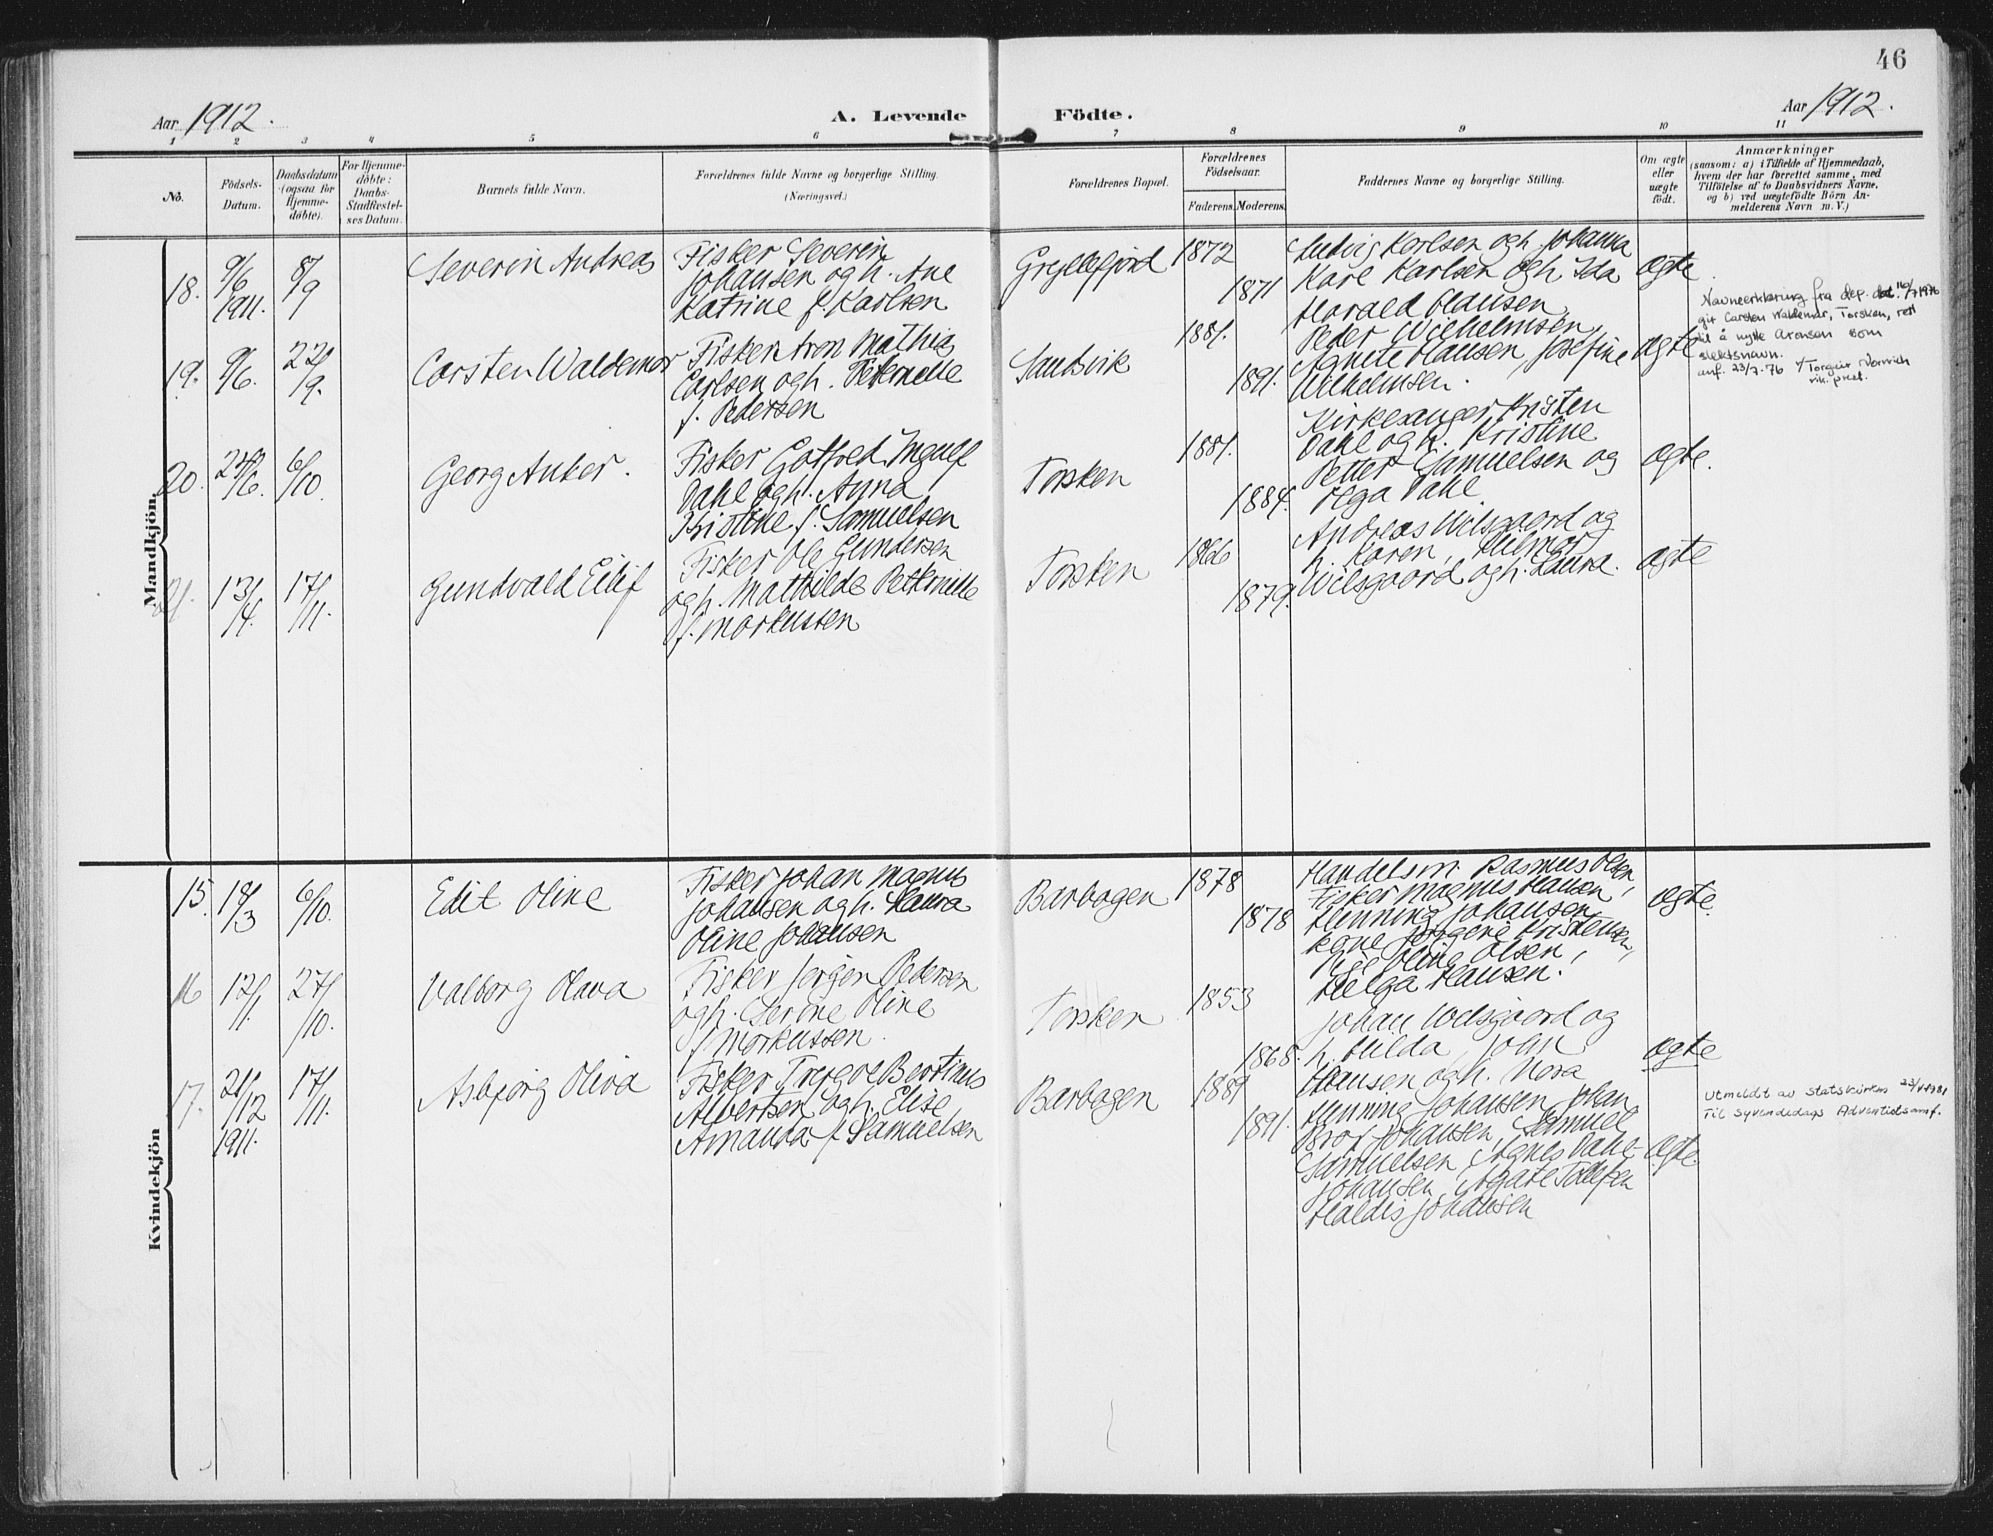 46
Aar 1912.
A. Levende
Födte.
Aar 1912.
1 2 3 4 5 6 7 8 9 10 11
No.
Födsels-
Datum.
Daabsdatum
(ogsaa for
Hjemme-
döbte).
For Hjemme-
döbte:
Daabs-
Stadfestel-
ses Datum.
Barnets fulde Navn.
Forældrenes fulde Navne og borgerlige Stilling.
(Næringsvei.)
Forældrenes Bopæl.
Forældrenes
Födselsaar.
Faderens. Moderens.
Faddernes Navne og borgerlige Stilling.
Om ægte
eller
uægte
født.
Anmærkninger
(saasom: a) i Tilfælde af Hjemmedaab,
hvem der har forrettet samme, med
Tilföielse af to Daabsvidners Navne,
og b) ved uægtefödte Börn An-
melderens Navn m. V.)
Mandkjön
18.
9/6
1911.
8/9
Severin Andreas
Fisker Severin
Johansen og h. Ane
Katrine f. Karlsen
Gryllefjord
1872
1871
Ludvig Karlsen og h. Johanna
Kare Karlsen og h Ida
Harald Hansen,
ægte
19.
9/6.
22/9.
Carsten Waldemar
Fisker Aron Mathias
Carlsen og h. Peternelle
f. Pedersen
Sandvik
1881.
1891.
Peder Wilhelmsen,
Agnete Hansen Josefine
Wilhelmsen.
ægte
Navneerklæring fra dep. dat. 16/7 1976
gir Carsten Waldemar, Torsken, rett
til å nytte Aronsen som
slektsnavn.
anf. 23/7-76
vik. prest.
20.
6/10.
Georg Anker.
Fisker Gotfred Ingulf
Dahl og h. Anna
Kristine f. Samuelsen
Torsken
1881.
1884.
Kirkesanger Kristen
Dahl og h. Kristine
Petter Samuelsen og
Olga Dahl
ægte.
21.
13/4.
17/11.
Gundvald Eilif
Fisker Ole Gundersen
og h. Mathilde Peternille
f. Markussen
Torsken
1866
1879.
Andreas Wilsgaard og
h. Karen, Hilmar
Wilsgaard og h. Laura.
ægte
Kvindekjön
15.
6/10.
Edit Oline
Fisker Johan Magnus
Johansen og h. Laura
Oline Johansen
Barbogen
1878
1878
Handelsm. Rasmus Olsen,
Fisker Magnus Hansen,
Henning Johansen
Kone Jørgine Kristensen,
Pige Oline Olsen,
Helga Hansen.
ægte.
16
12/1.
27/10.
Valborg Olava
Fisker Jørgen Pedersen
og h. Serine Oline
f Markussen.
Torsken
1853
1868.
Johan Wilsgaard og
h. Hilda, Johan
Hansen og h. Nora
ægte
17.
21/12
1911.
17/11.
Asbjørg Oliva
Fisker Trygve Bertinus
Albertsen og h. Elise
Amanda f Samuelsen
Barbogen
1889
1891.
Henning Johansen Johan
Brox Johansen, Samuel
Samuelsen, Agnes Dahl
Johansen, Agate Tollefsen
Haldis Johansen
ægte.
Utmeldt av statskirken 23/4 1981
Til Syvendedags Adventistsamf.